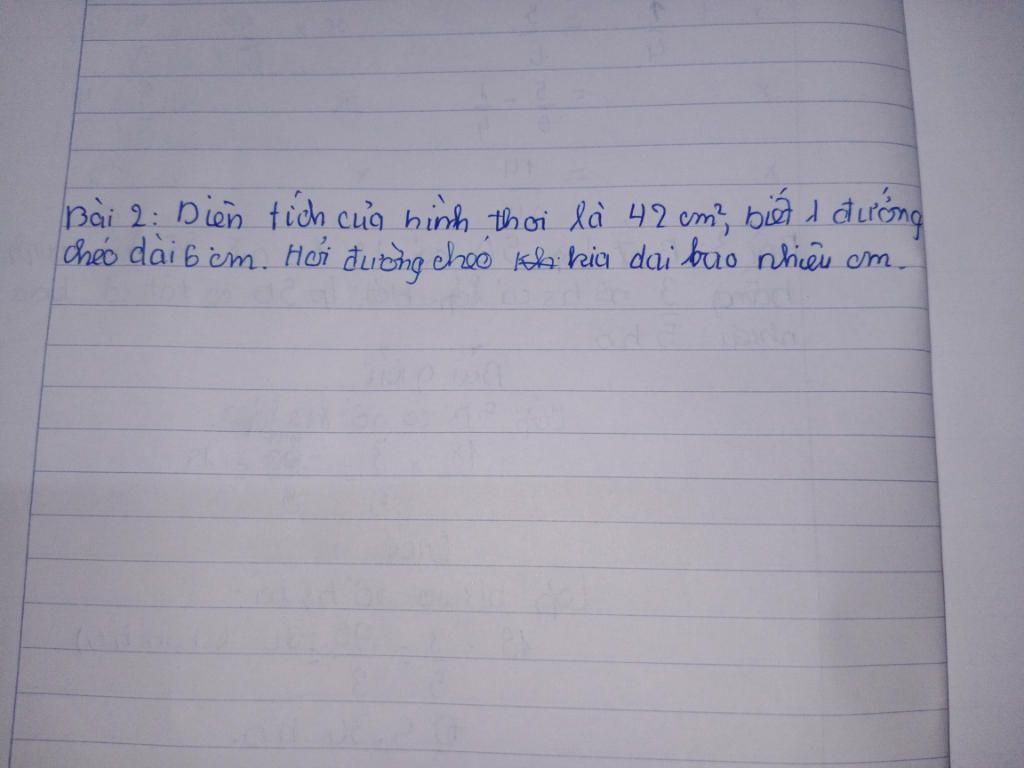 Bài 2: Diện tích của hình thoi là 42 cm², biết 1 đường
chéo dài 6 cm. Hỏi đường chéo kia dai bao nhiêu cm.